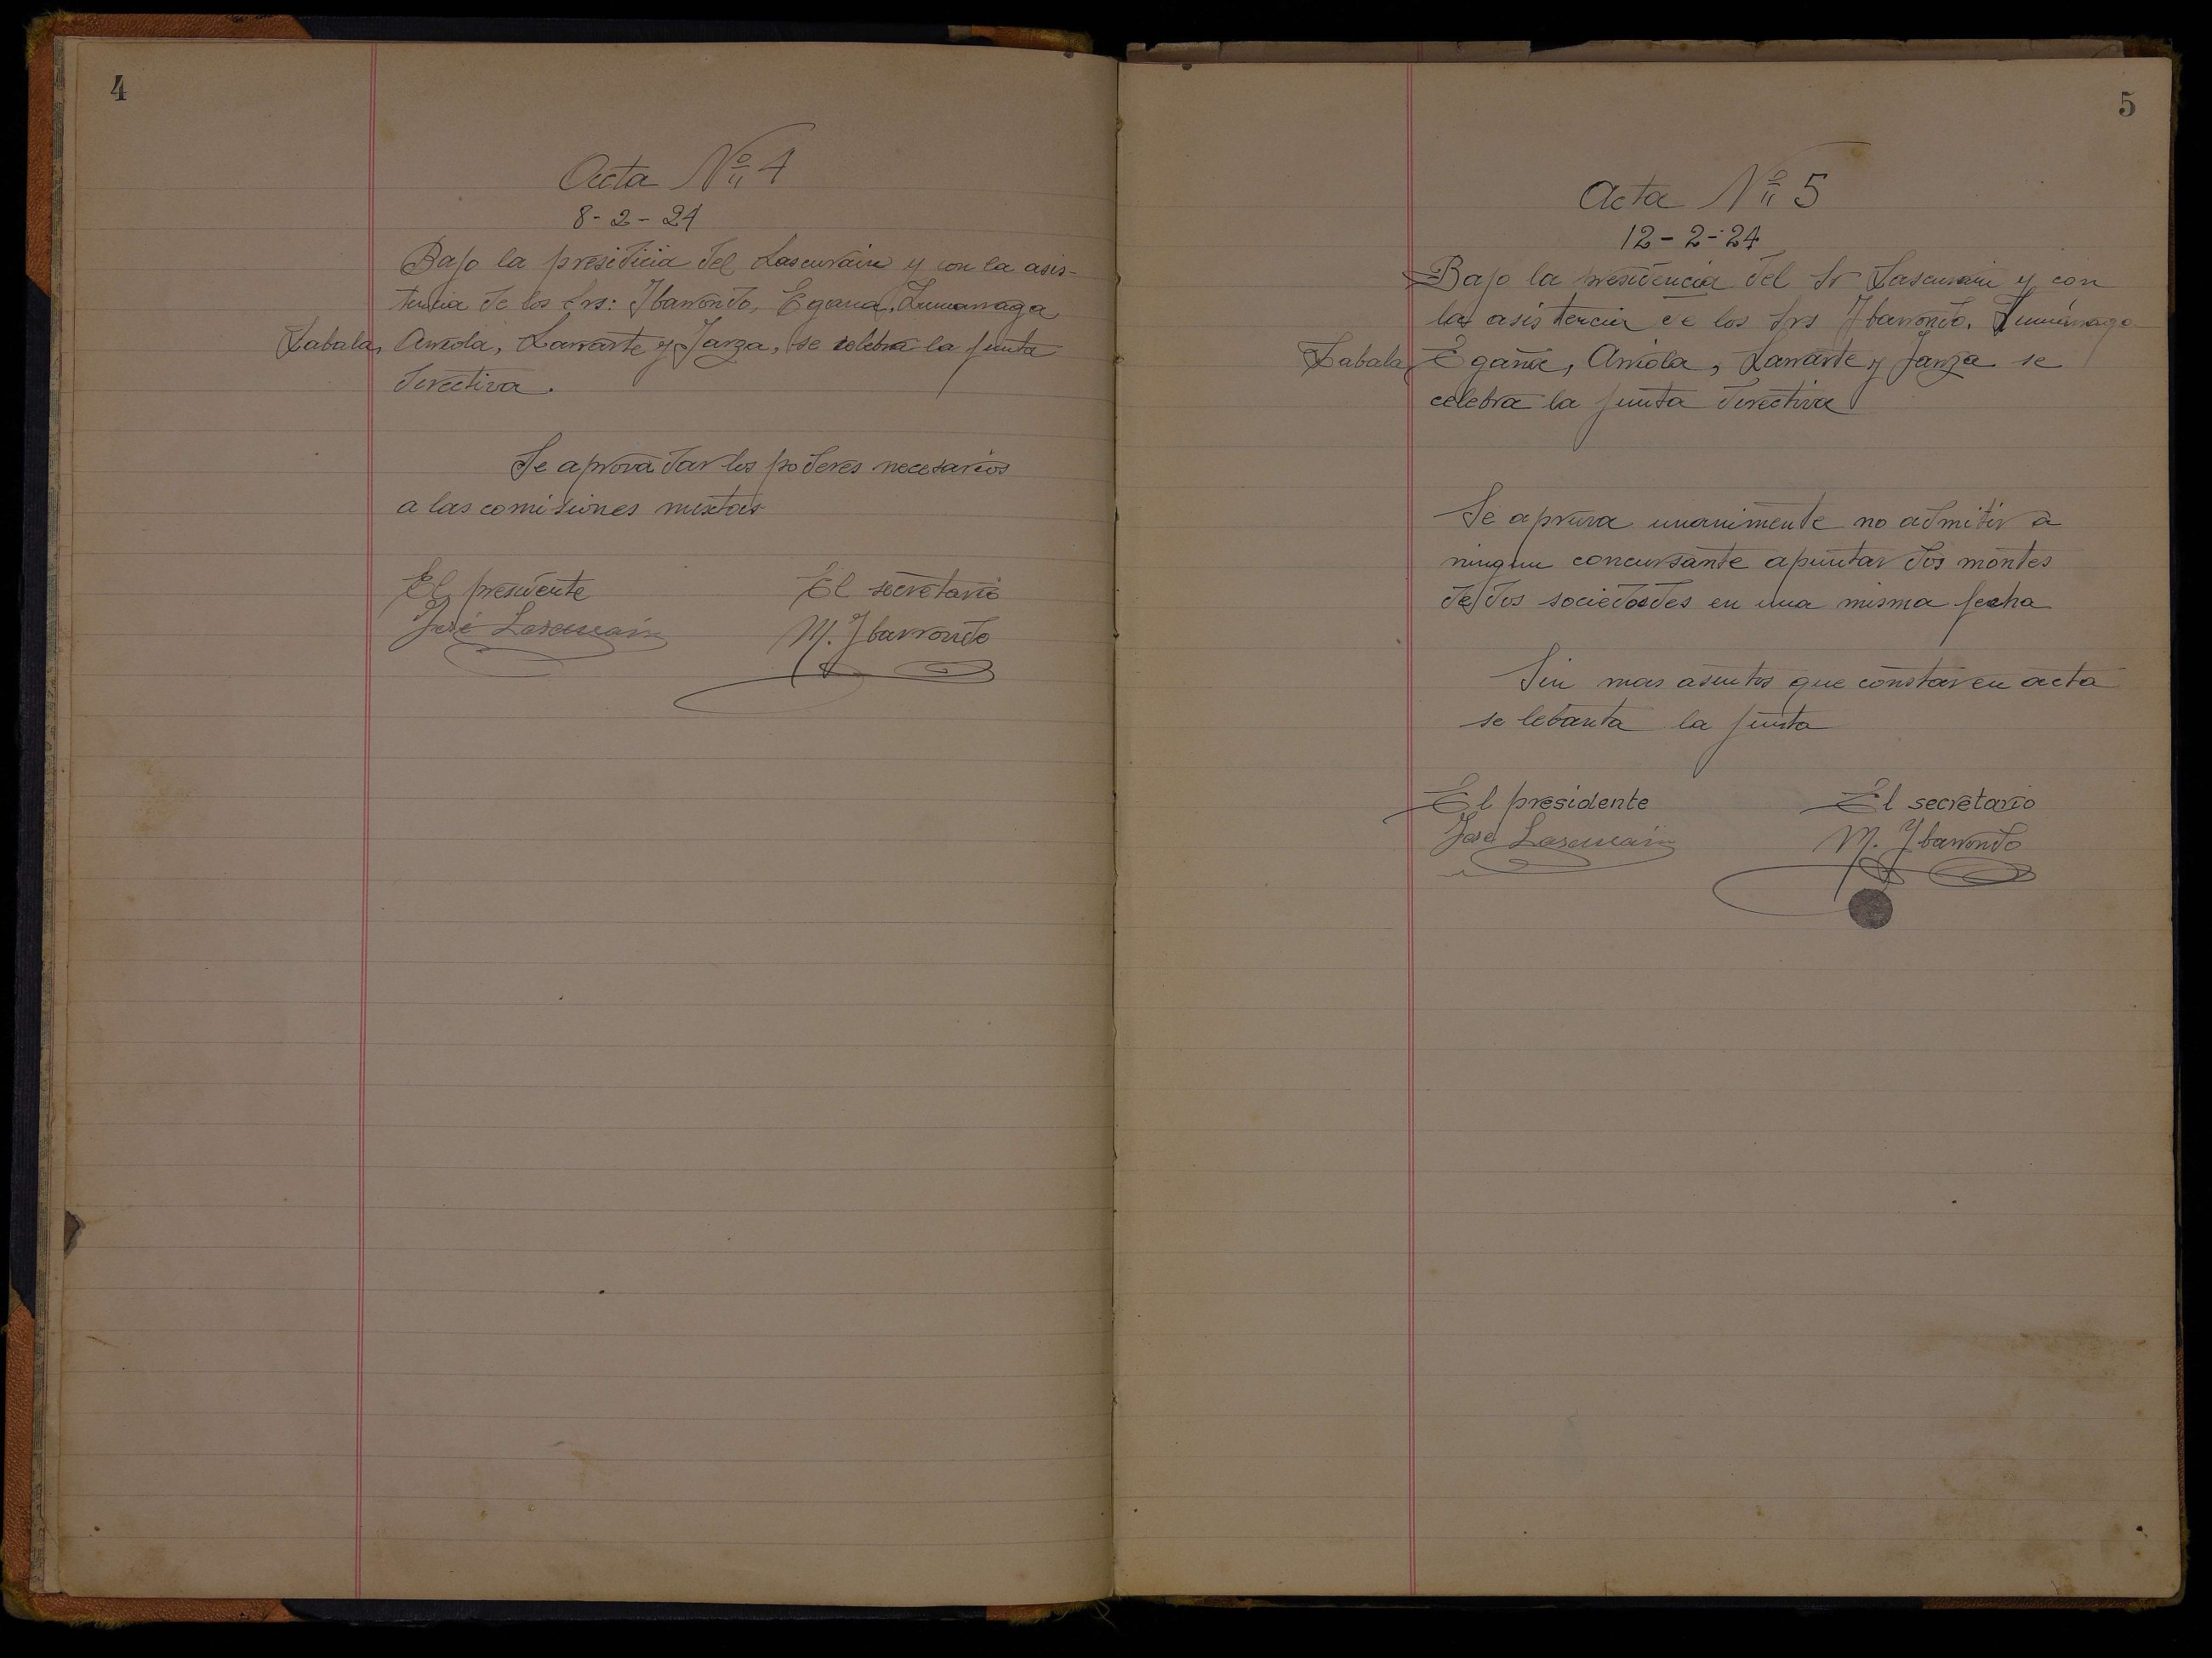 4
Acta Nº 4
8-2-24
Bajo la presidicia del Lascurain y con la asis-
tencia de los Srs: Ibarrondo, Egaña, Zumarraga
Zabala, Arriola, Larrarte y Jarza, se celebra la junta
directiva.
Se aprova dar los poderes necesarios
a las comisiones mixtas
El presidente El secretario
José Lascurain M. Ibarrondo
5
Acta Nº 5
12-2-24
Bajo la presidencia del Sr Lascurain y con
la asistencia de los Srs Ibarrondo, Zumárraga
Zabala, Egaña, Arriola, Larrarte y Jarza se
celebra la junta directiva
Se aprueva unanimente no admitir a
ningun concursante apuntar dos montes
de dos sociedades en una misma fecha
Sin mas asuntos que constar en acta
se lebanta la junta
El presidente El secretario
José Lascurain M. Ibarrondo